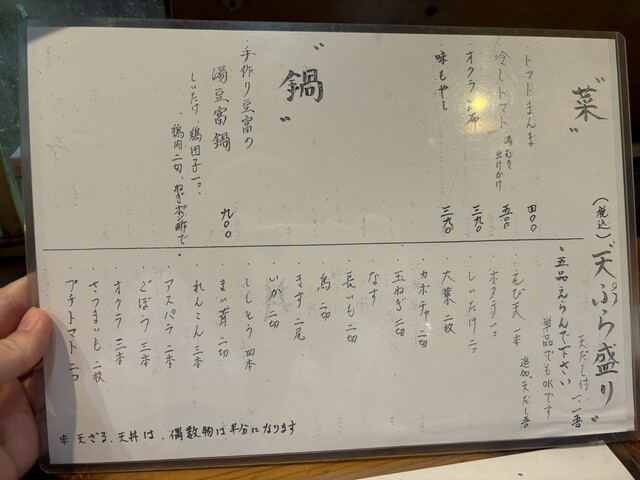 〝菜〟
トマトまんま 四〇〇
冷しトマト 湯むき 出汁かけ 五〇〇
オクラ 三九〇
味もやし 三九〇
〝鍋〟
手作り豆富の
湯豆富鍋 九〇〇
しいたけ、鶏団子一コ、
鶏肉二切、ねぎポン酢で。
(税込)〝天ぷら盛り〟
天だし付
・五品えらんで下さい
単品でもOKです
追加天だし
えび天 一本
ホタテ 一コ
しいたけ 二コ
大葉 二枚
カボチャ 二切
玉ねぎ 二切
なす
長いも 二切
鳥 二切
きす 二尾
いか 二切
ししとう 四本
まい茸 二切
れんこん 三本
アスパラ 二本
ごぼう 三本
オクラ 三本
さつまいも 二枚
プチトマト 二コ
※天ざる、天丼は、偶数物は半分になります